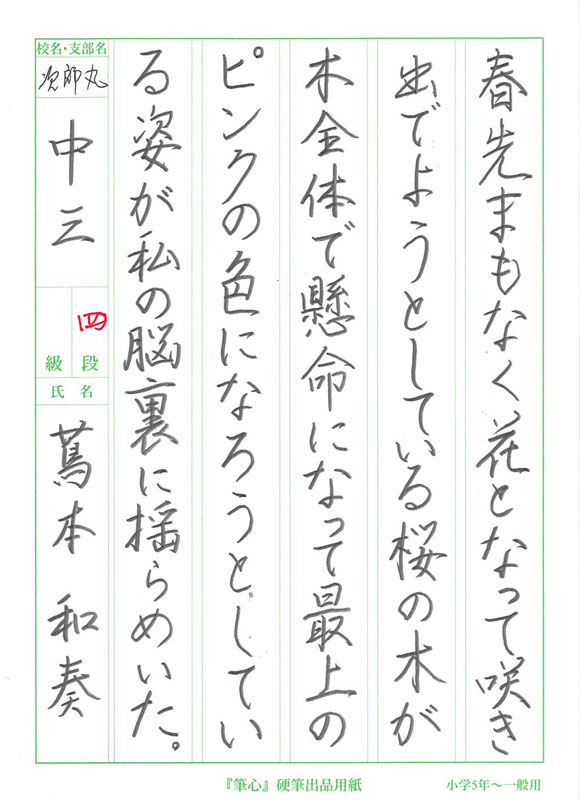 春先まもなく花となって咲き
出でようとしている桜の木が
木全体で懸命になって最上の
ピンクの色になろうとしてい
る姿が私の脳裏に揺らめいた。
校名・支部名
次郎丸
中三
四
段
級
氏名
蔦本 和奏
『筆心』硬筆出品用紙
小学5年～一般用